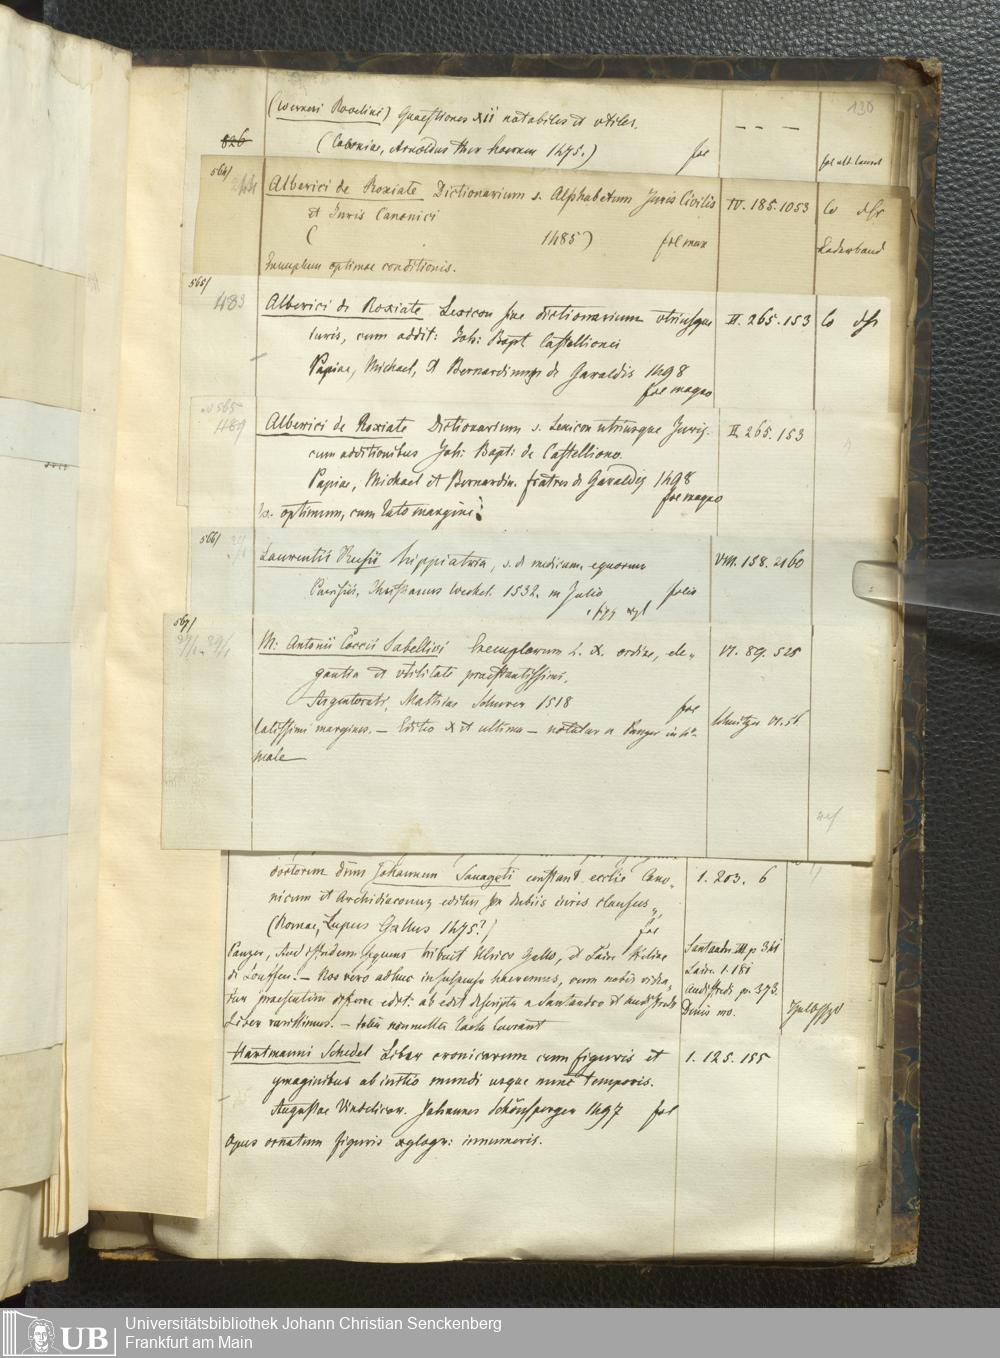 130
(Werneri Roolini) Quaestiones xii notabiles et utiles.
826
(Coloniae, Arnoldus ther hoernen 1475.) fol
564/
Alberici de Roxiate Dictionarium s. Alphabetum Juris Civilis IV. 185. 1053
et Juris Canonici
( 1485) fol max
Lederband
Exemplum optimae conditionis.
565/
483
Alberici de Roxiate Lexicon sive dictionarium utriusque II. 265. 153
iuris, cum addit: Joh: Bapt Castellionei
Papiae, Michael, et Bernardinum de Garaldis 1498
fol magno
565
489
Alberici de Roxiate Dictionarium s. Lexicon utriusque Juris. II. 265. 153
cum additionibus Joh: Bapt: de Castelliono.
Papiae, Michael et Bernardin. fratres de Garaldis 1498
fol magno
Ex. optimum, cum lato margine.
566/
Laurentii Rusii hippiatria, s. de medicam. equorum VIII. 158. 2160
Parisiis, Christianus Wechel. 1532. m Julio folio
567/
M: Antonii Coccii Sabellici Exemplorum L. X. ordine, ele- VI. 89. 525
gantia et utilitate praestantissimi.
Argentorati, Mathias Schurer 1518 fol
latissimi margines. — Editio X et ultima — notatur a Panzer in 4°
male
doctorem dnm Johannem Sauageti constant. ecclie Cano- 1. 203. 6
nicum et Archidiaconum editus pro dubiis iuris clausus
(Romae, Lupus Gallus 1475?) fol
Santander III p. 341
Panzer, Audiffredum sequens tribuit Ulrico Gallo, et
Laire 1. 181
— Nos vero adhuc in suspenso haeremus, cum nobis
Audiffredi p. 373.
praesentem differre edit: ab edit descripta a Santandro et Audiffredo
Denis no.
Liber rarissimus. — folia nonnulla
Hartmanni Schedel Liber cronicarum cum figuris et 1. 125. 155
ymaginibus ab initio mundi usque nunc temporis.
Augustae Vindelicor. Johannes Schönsperger 1497 fol
Opus ornatum figuris xylogr: innumeris.
UB
Universitätsbibliothek Johann Christian Senckenberg
Frankfurt am Main